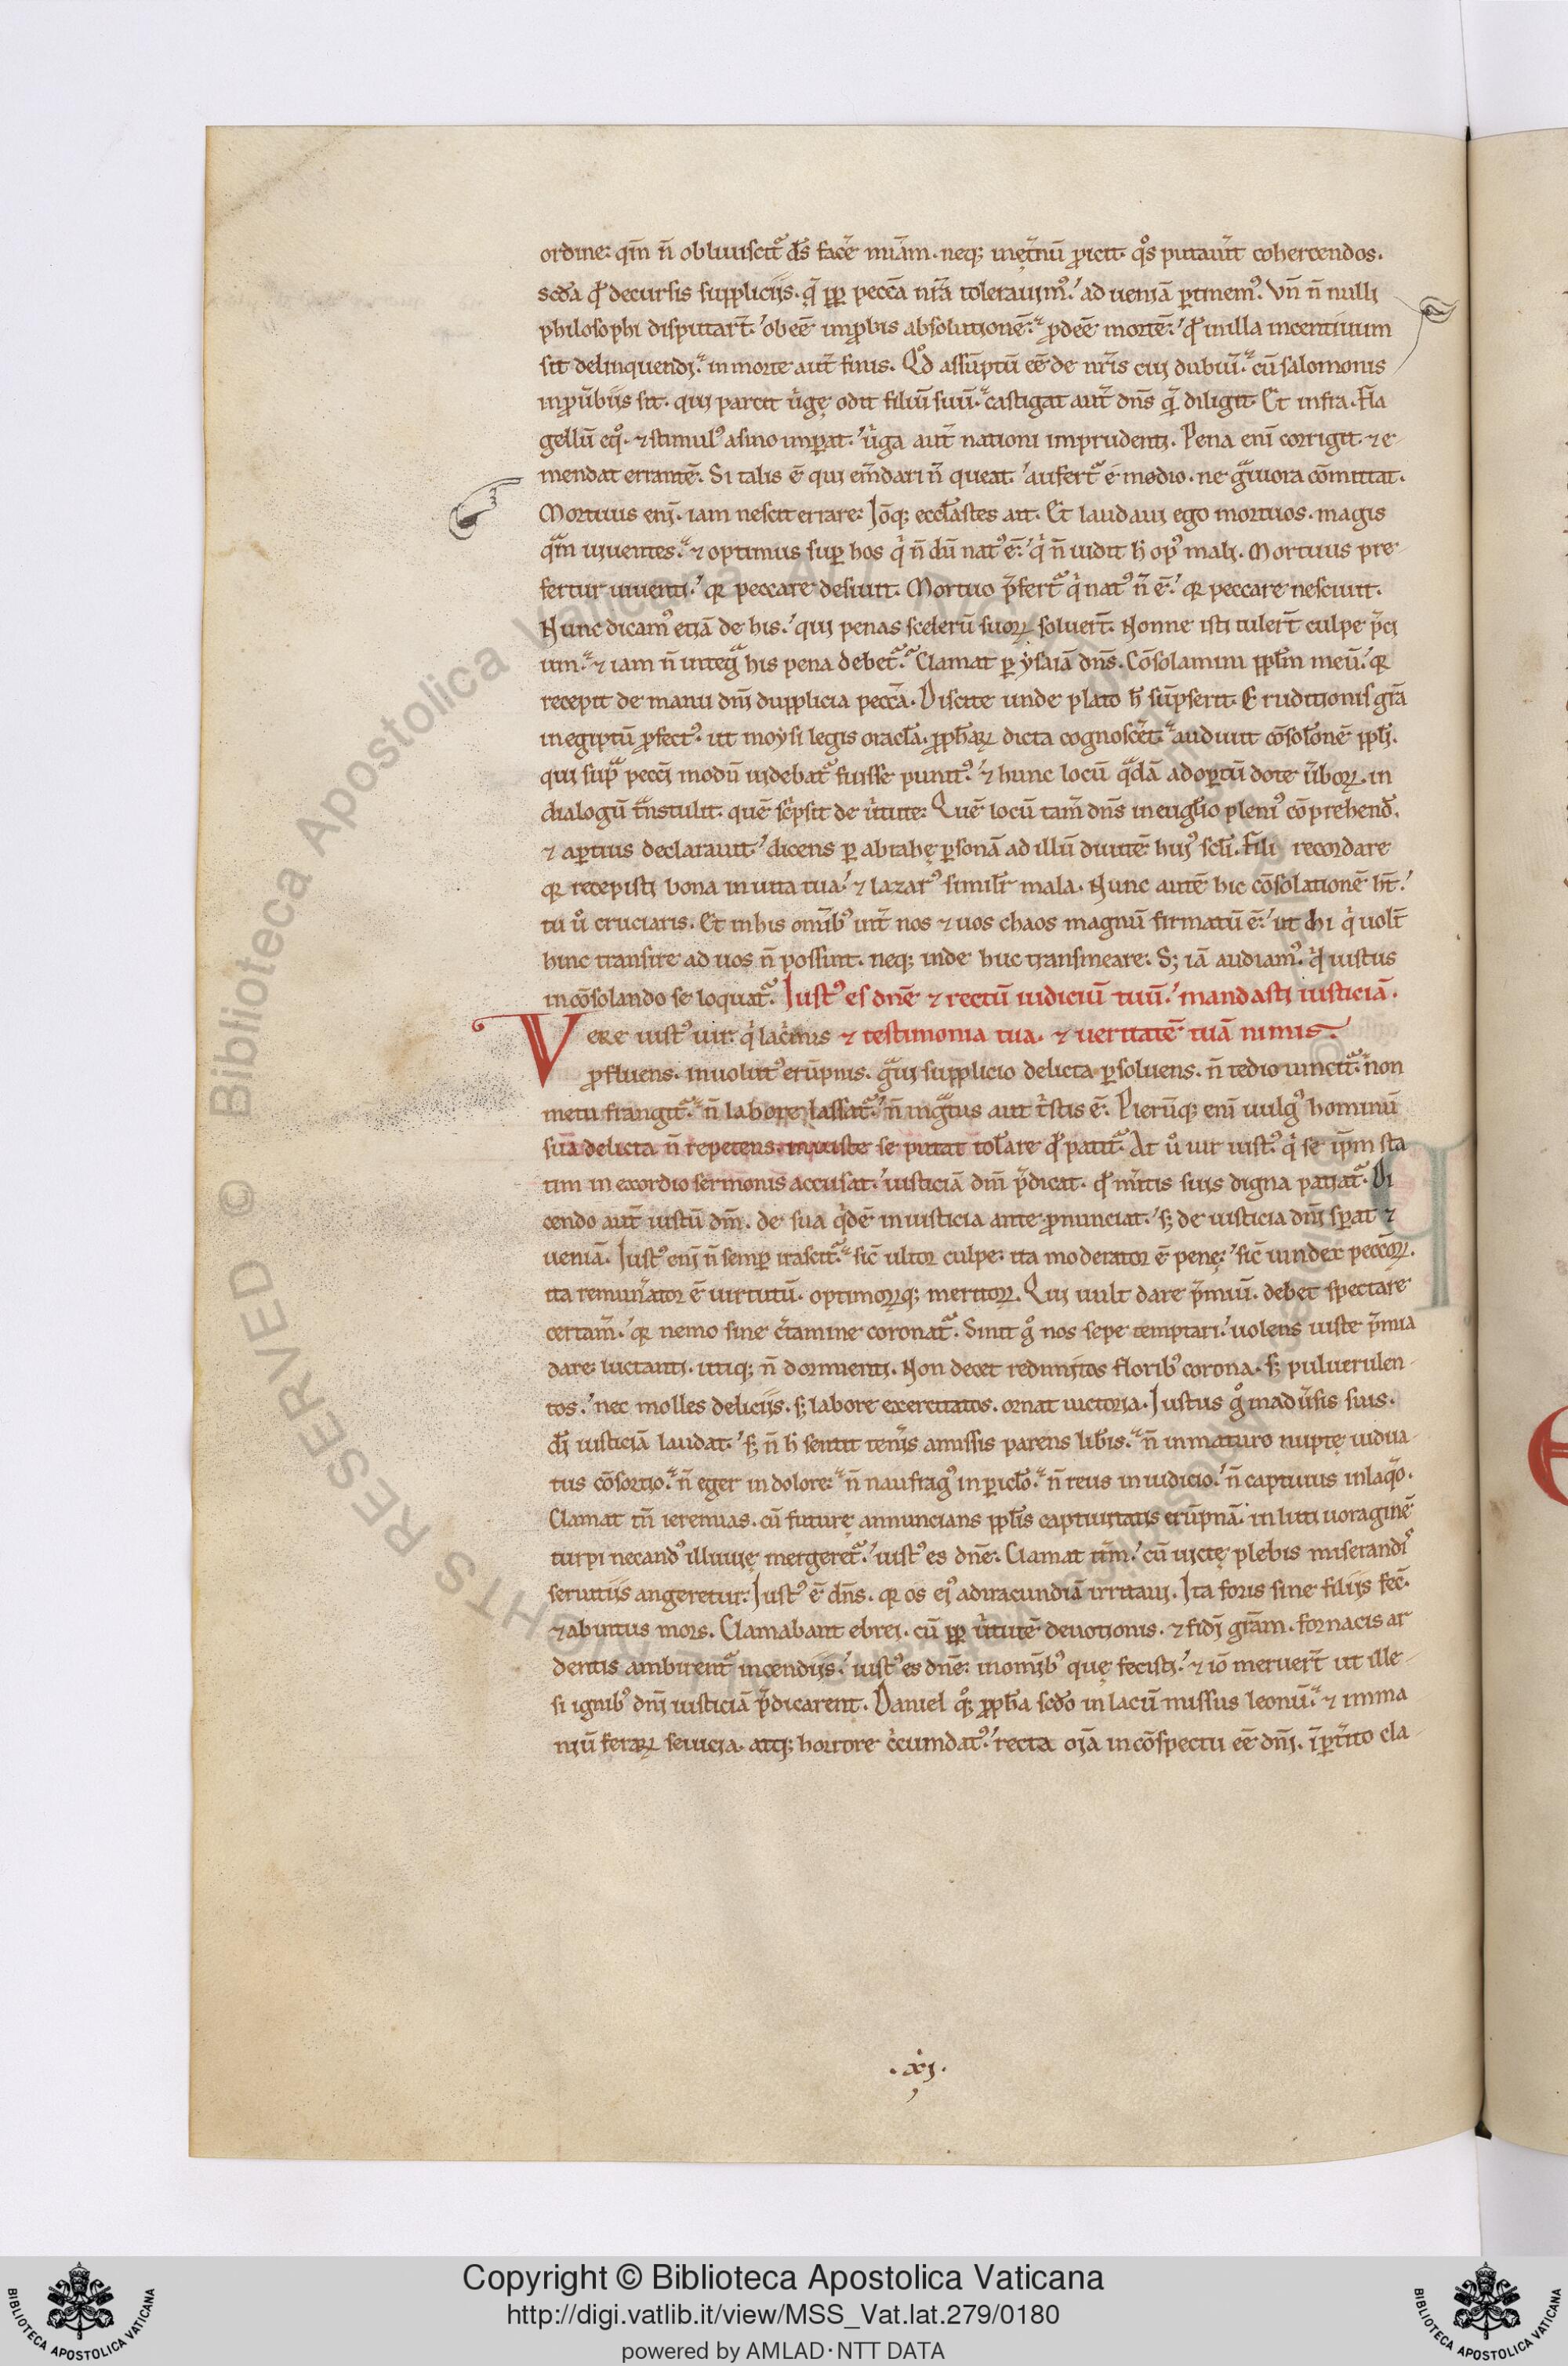 ordine: qm̄ n̄ obliuiscit᷑ ds̄ facē miām. neq; inęt̄nū ꝓicit q̊s putauit̄ cohercendos.
scd̄a qđ decursis suppliciis. q̄ ꝓp pecc̄a nr̄a tolerauim᷒. ad ueniā ꝑtinem᷒. Vn̄ n̄ nulli
philosophi disputart̄. obeē improbis absolutionē. ꝓdeē mortē. qđ in illa incentiuum
sit delinquendi. in morte aut̄ finis. Qđ assūptū eē de nr̄is cui dubiū. cū salomonis
in ꝓūbiis sit. qui parcit ūgę odit filiū suū. castigat aut̄ dn̄s q̄ diligit. Et infra. Fla
gellū eq̊. ⁊ stimul᷒ asino imꝑat. ūga aut̄ nationi imprudenti. Pena eni corrigit. ⁊ e-
mendat errantē. Si talis ē qui em̄dari n̄ queat. aufert᷑ e medio. ne gͣuiora cōmittat.
Mortuus eni. iam nescit errare. Iōq; eccl̄astes ait. Et laudaui ego mortuos. magis
qͣm uiuentes. ⁊ optimus suꝑ hos qⁱ n̄ dū nat᷒ ē. qⁱ n̄ uidit h̄ op᷒ mali. Mortuus pre-
fertur uiuenti. qꝛ peccare desiuit. Mortuo p̄fert᷑ qⁱ nat᷒ n̄ ē. qꝛ peccare nesciuit.
Nunc dicam᷒ etiā de his. qui penas scelerū suoꝝ soluert̄. Nonne isti tulert̄ culpe p̄ci
um. ⁊ iam n̄ integͣ his pena debet᷑. Clamat ꝑ ysaiā dn̄s. Cōsolamini ppl̄m meū. qꝛ
recepit de manu dn̄i dupplicia pecc̄a. Discite unde plato h̄ sūpserit. Eruditionis grā
in egiptū ꝓfect᷒. ut moysi legis oracl̄a. ꝓph̄aꝝ dicta cognoscet̄. audiuit cōsol̄onē ppl̄i.
qui supͣ pecci modū uidebat᷑ fuisse punit᷒. ⁊ hunc locū qͣdā adoꝑtū dote ūboꝝ in
dialogū tͣnstulit. quē sc̄psit de ūtute. Quē locū tam̄ dn̄s in eugl̄io pleni᷒ cōprehend̄.
⁊ aꝑtius declarauit. dicens ꝑ abrahę ꝑsonā ad illū diuitē hui᷒ scl̄i. Fili recordare
qꝛ recepisti bona in uita tua. ⁊ lazar᷒ simil̄r mala. Nunc autē hic cōsolationē ht̄.
tu ů cruciaris. Et in his omib᷒ int̄ nos ⁊ uos chaos magnū firmatū ē. ut hi qⁱ uolt̄
hinc transire ad uos n̄ possint. neq; inde huc transmeare. S; iā audiam᷒. qđ iustus
in cōsolando se loquat᷑. Iust᷒ es dn̄e ⁊ rectū iudiciū tuū. mandasti iusticiā.
Vere iust᷒ uir. qⁱ lac̄mis ⁊ testimonia tua. ⁊ ueritatē tuā nimis.
ꝓfluens. inuolut᷒ erūpnis. gͣui supplicio delicta ꝑsoluens. n̄ tedio uincit᷑. non
metu frangit᷑. n̄ labore lassat᷑. n̄ ingͣtus aut tⁱstis ē. Plerūq; eni uulg᷒ hominū
sua delicta n̄ repetens. iniuste se putat tol̄are qđ patit᷑. At ů uir iust᷒. qⁱ se ip̄m sta
tim in exordio sermonis accusat. iusticiā dn̄i p̄dicat. qđ mit̄is suis digna patiat᷑. Di
cendo aut̄ iustū dn̄m. de sua qⁱdē iniusticia ante ꝓnunciat. s; de iusticia dn̄i sꝑat ⁊
ueniā. Iust᷒ eni n̄ semꝑ irascit᷑. sic̄ ultor culpe. ita moderator ē penę. sic̄ uindex pecc̄oꝝ.
ita remun̄ator ē uirtutū. optimoꝝq; meritoꝝ. Qui uult dare p̄miū. debet spectare
certam̄. qꝛ nemo sine c̄tamine coronat᷑. Sinit g̊ nos sepe temptari. uolens iuste p̄mia
dare luctanti. utiq; n̄ dormienti. Non decet redimitos florib᷒ corona. s; puluerulen-
tos. nec molles deliciis. s; labore exercitatos. ornat uictoria. Iustus g̊ in aduersis suis.
di iusticiā laudat. s; n̄ h̄ sentit teneris amissis parens lib̄is. n̄ inmaturo nuptę uidua-
tus cōsortio. n̄ eger in dolore. n̄ naufrag᷒ in ꝑicl̄o. n̄ reus in iudicio. n̄ captiuus in laq̊o.
Clamat tn̄ ieremias. cū futurę annuncians ppl̄is captiuitatis erūpnā. in luti uoraginē
turpi necand᷒ illuuię mergeret᷑. iust᷒ es dn̄e. Clamat itm̄. cū uictę plebis miserandi᷒
seruitiis angeretur. Iust᷒ ē dn̄s. qꝛ os ei᷒ ad iracundiā irritaui. Ita foris sine filiis fec̄.
⁊ ab intus mors. Clamabant ebrei. cū ꝓp ūtutē deuotionis. ⁊ fidi grām. fornacis ar
dentis ambirent᷑ incendiis. iust᷒ es dn̄e. in omib᷒ quę fecisti. ⁊ iō meruert̄ ut ille-
si ignib᷒ dn̄i iusticiā p̄dicarent. Daniel q᷒; ꝓph̄a scd̄o in lacū missus leonū. ⁊ imma
niū feraꝝ seuicia. atq; horrore c̄cumdat᷒. recta oīa in cōspectu eē dn̄i. īꝑt̄ito cla-
.xi.
Copyright © Biblioteca Apostolica Vaticana
http://digi.vatlib.it/view/MSS_Vat.lat.279/0180
powered by AMLAD·NTT DATA